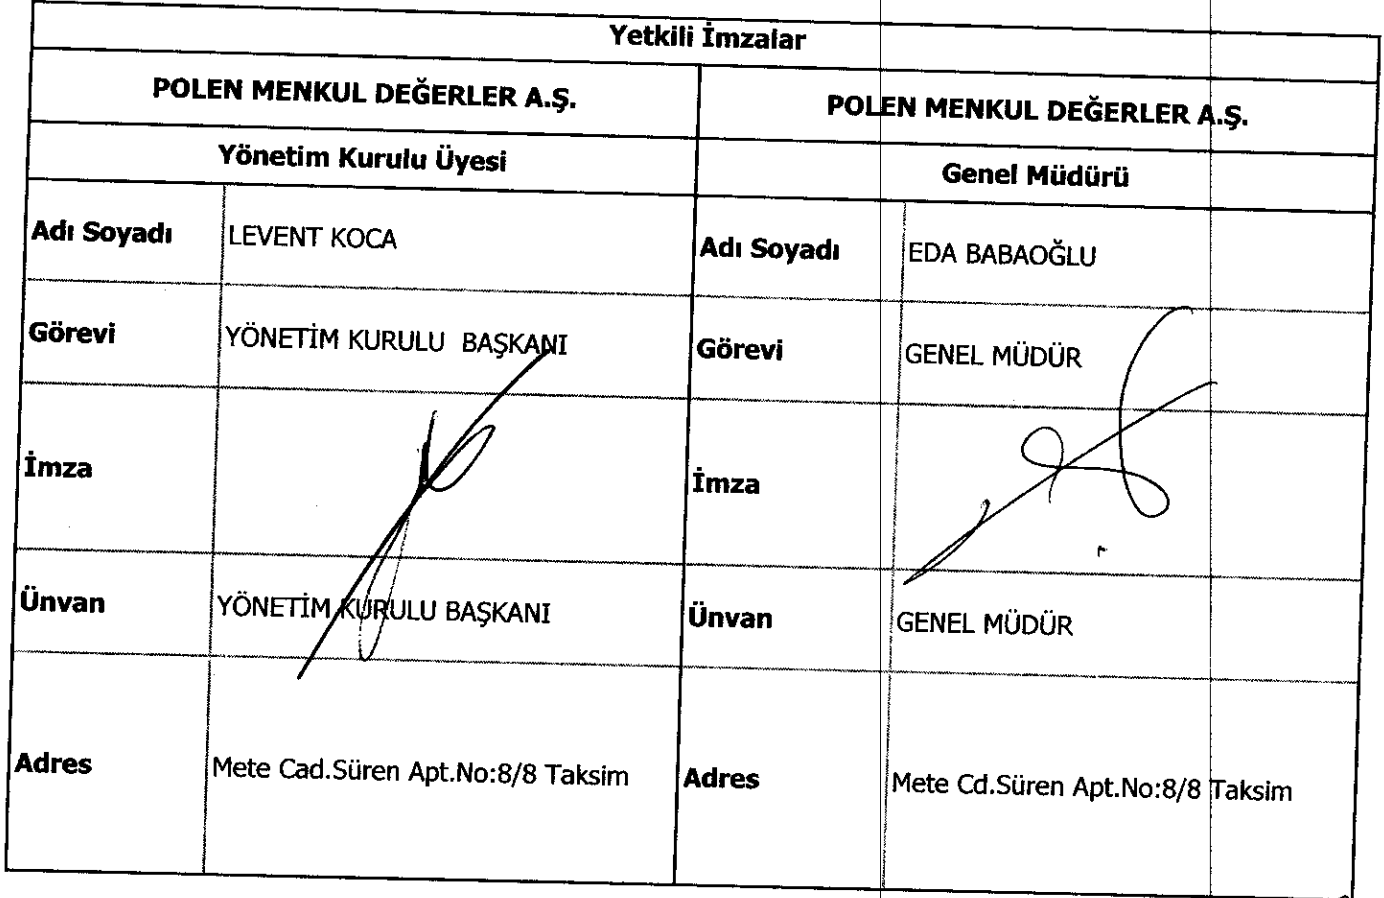 Yetkili İmzalar
POLEN MENKUL DEĞERLER A.Ş.
POLEN MENKUL DEĞERLER A.Ş.
Yönetim Kurulu Üyesi
Genel Müdürü
Adı Soyadı LEVENT KOCA
Adı Soyadı EDA BABAOĞLU
Görevi YÖNETİM KURULU BAŞKANI
Görevi GENEL MÜDÜR
İmza
İmza
Ünvan YÖNETİM KURULU BAŞKANI
Ünvan GENEL MÜDÜR
Adres Mete Cad.Süren Apt.No:8/8 Taksim
Adres Mete Cd.Süren Apt.No:8/8 Taksim